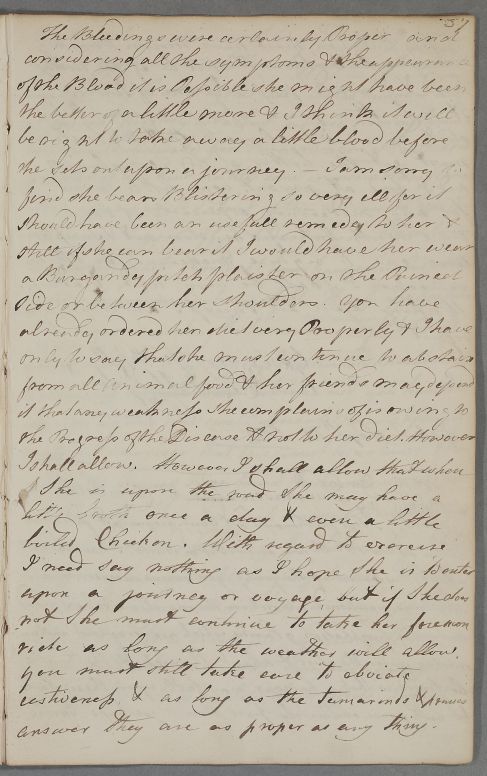 57
The Bleedings were certainly Proper and
considering all the symptoms & the appearance
of the Blood it is Possible she might have been
the better of a little more & I think it will
be right to take away a little blood before
she sets out upon a journey. — I am sorry to
find she bears Blistering so very ill, for it
should have been an usefull remedy to her &
still if she can bear it I would have her wear
a Burgandy pitch plaister on the Pained
side or between her shoulders. You have
already ordered her diet very Properly & I have
only to say that she must continue to abstain
from all animal food & her friends may depend
it that any weakness she complains of is owing to
the Progress of the Disease & not to her diet. However
I shall allow. However I shall allow that when
She is upon the road She may have a
little broth once a day & even a little
boild Chicken. With regard to exercise
I need say nothing as I hope She is to enter
upon a journey or voyage but if She does
not She must continue to take her forenoon
ride as long as the weather will allow.
you must still take care to obviate
costiveness & as long as the Tamarinds & prunes
answer they are as proper as any thing.